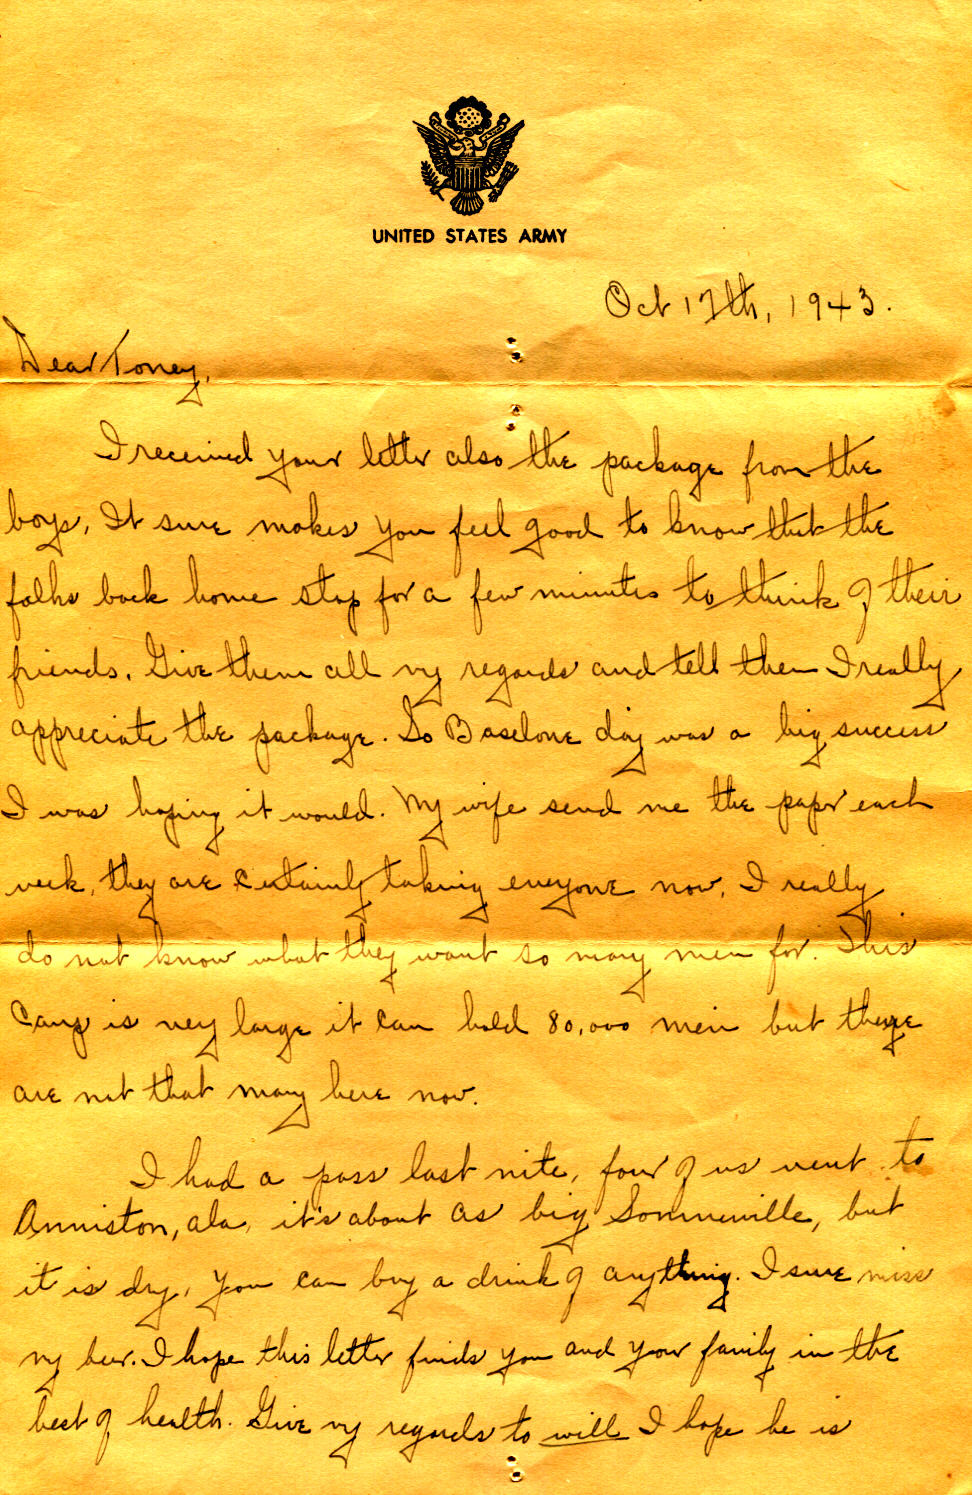 UNITED STATES ARMY
Oct 17th, 1943.
Dear Toney,
I received your letter also the package from the
boys, It sure makes you feel good to know that the
folks back home stop for a few minutes to think of their
friends. Give them all my regards and tell them I really
appreciate the package. So Baselone day was a big success
I was hoping it would. My wife send me the paper each
week, they are certainly taking everyone now, I really
do not know what they want so many men for. This
Camp is very large it can hold 80,000 men but there
are not that many here now.
I had a pass last nite, four of us went to
Anniston, ala, it's about as big Sommerville, but
it is dry, you can buy a drink of anything. I sure miss
my beer. I hope this letter finds you and your family in the
best of health. Give my regards to will I hope he is